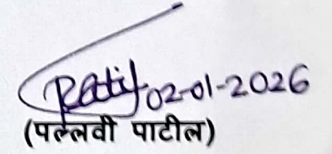 Patil 02-01-2026
(पल्लवी पाटील)